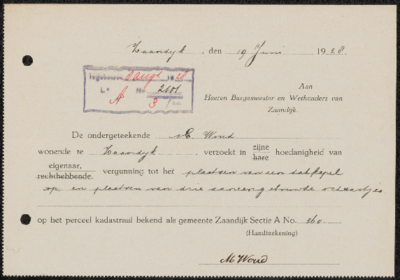 Zaandyk, den 19 Juni 1928
Ingekomen
L. A No 2601
3
Aan
Heeren Burgemeester en Wethouders van
Zaandijk.
De ondergeteekende M. Woud
wonende te Zaandyk, verzoekt in zijne hoedanigheid van
haee
eigenaar,
rechthebbende, vergunning tot het plaatsen van een dakkapel
op en plaatsen van drie aaneengebouwde
op het perceel kadastraal bekend als gemeente Zaandijk Sectie A No. 360.
(Handteekening)
M Woud